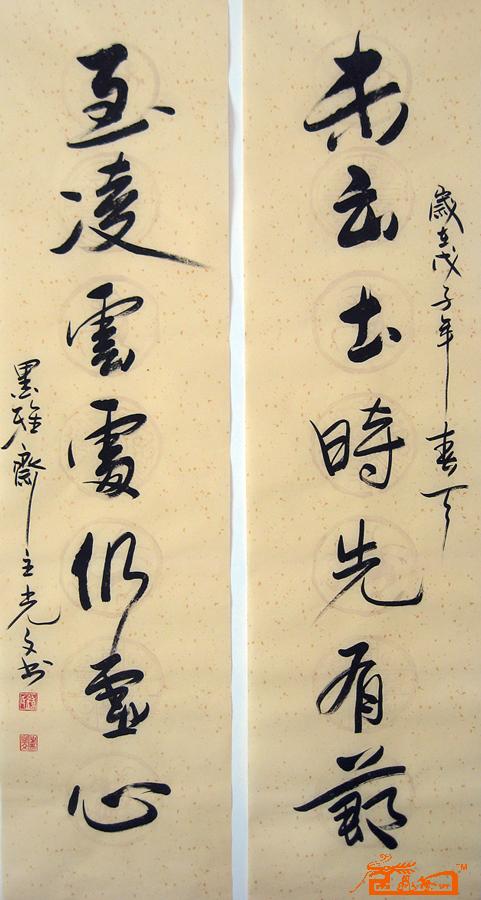 歲在戊子年春下
未出土時先有節
至凌雲處仍虛心
墨雅齋主光文书